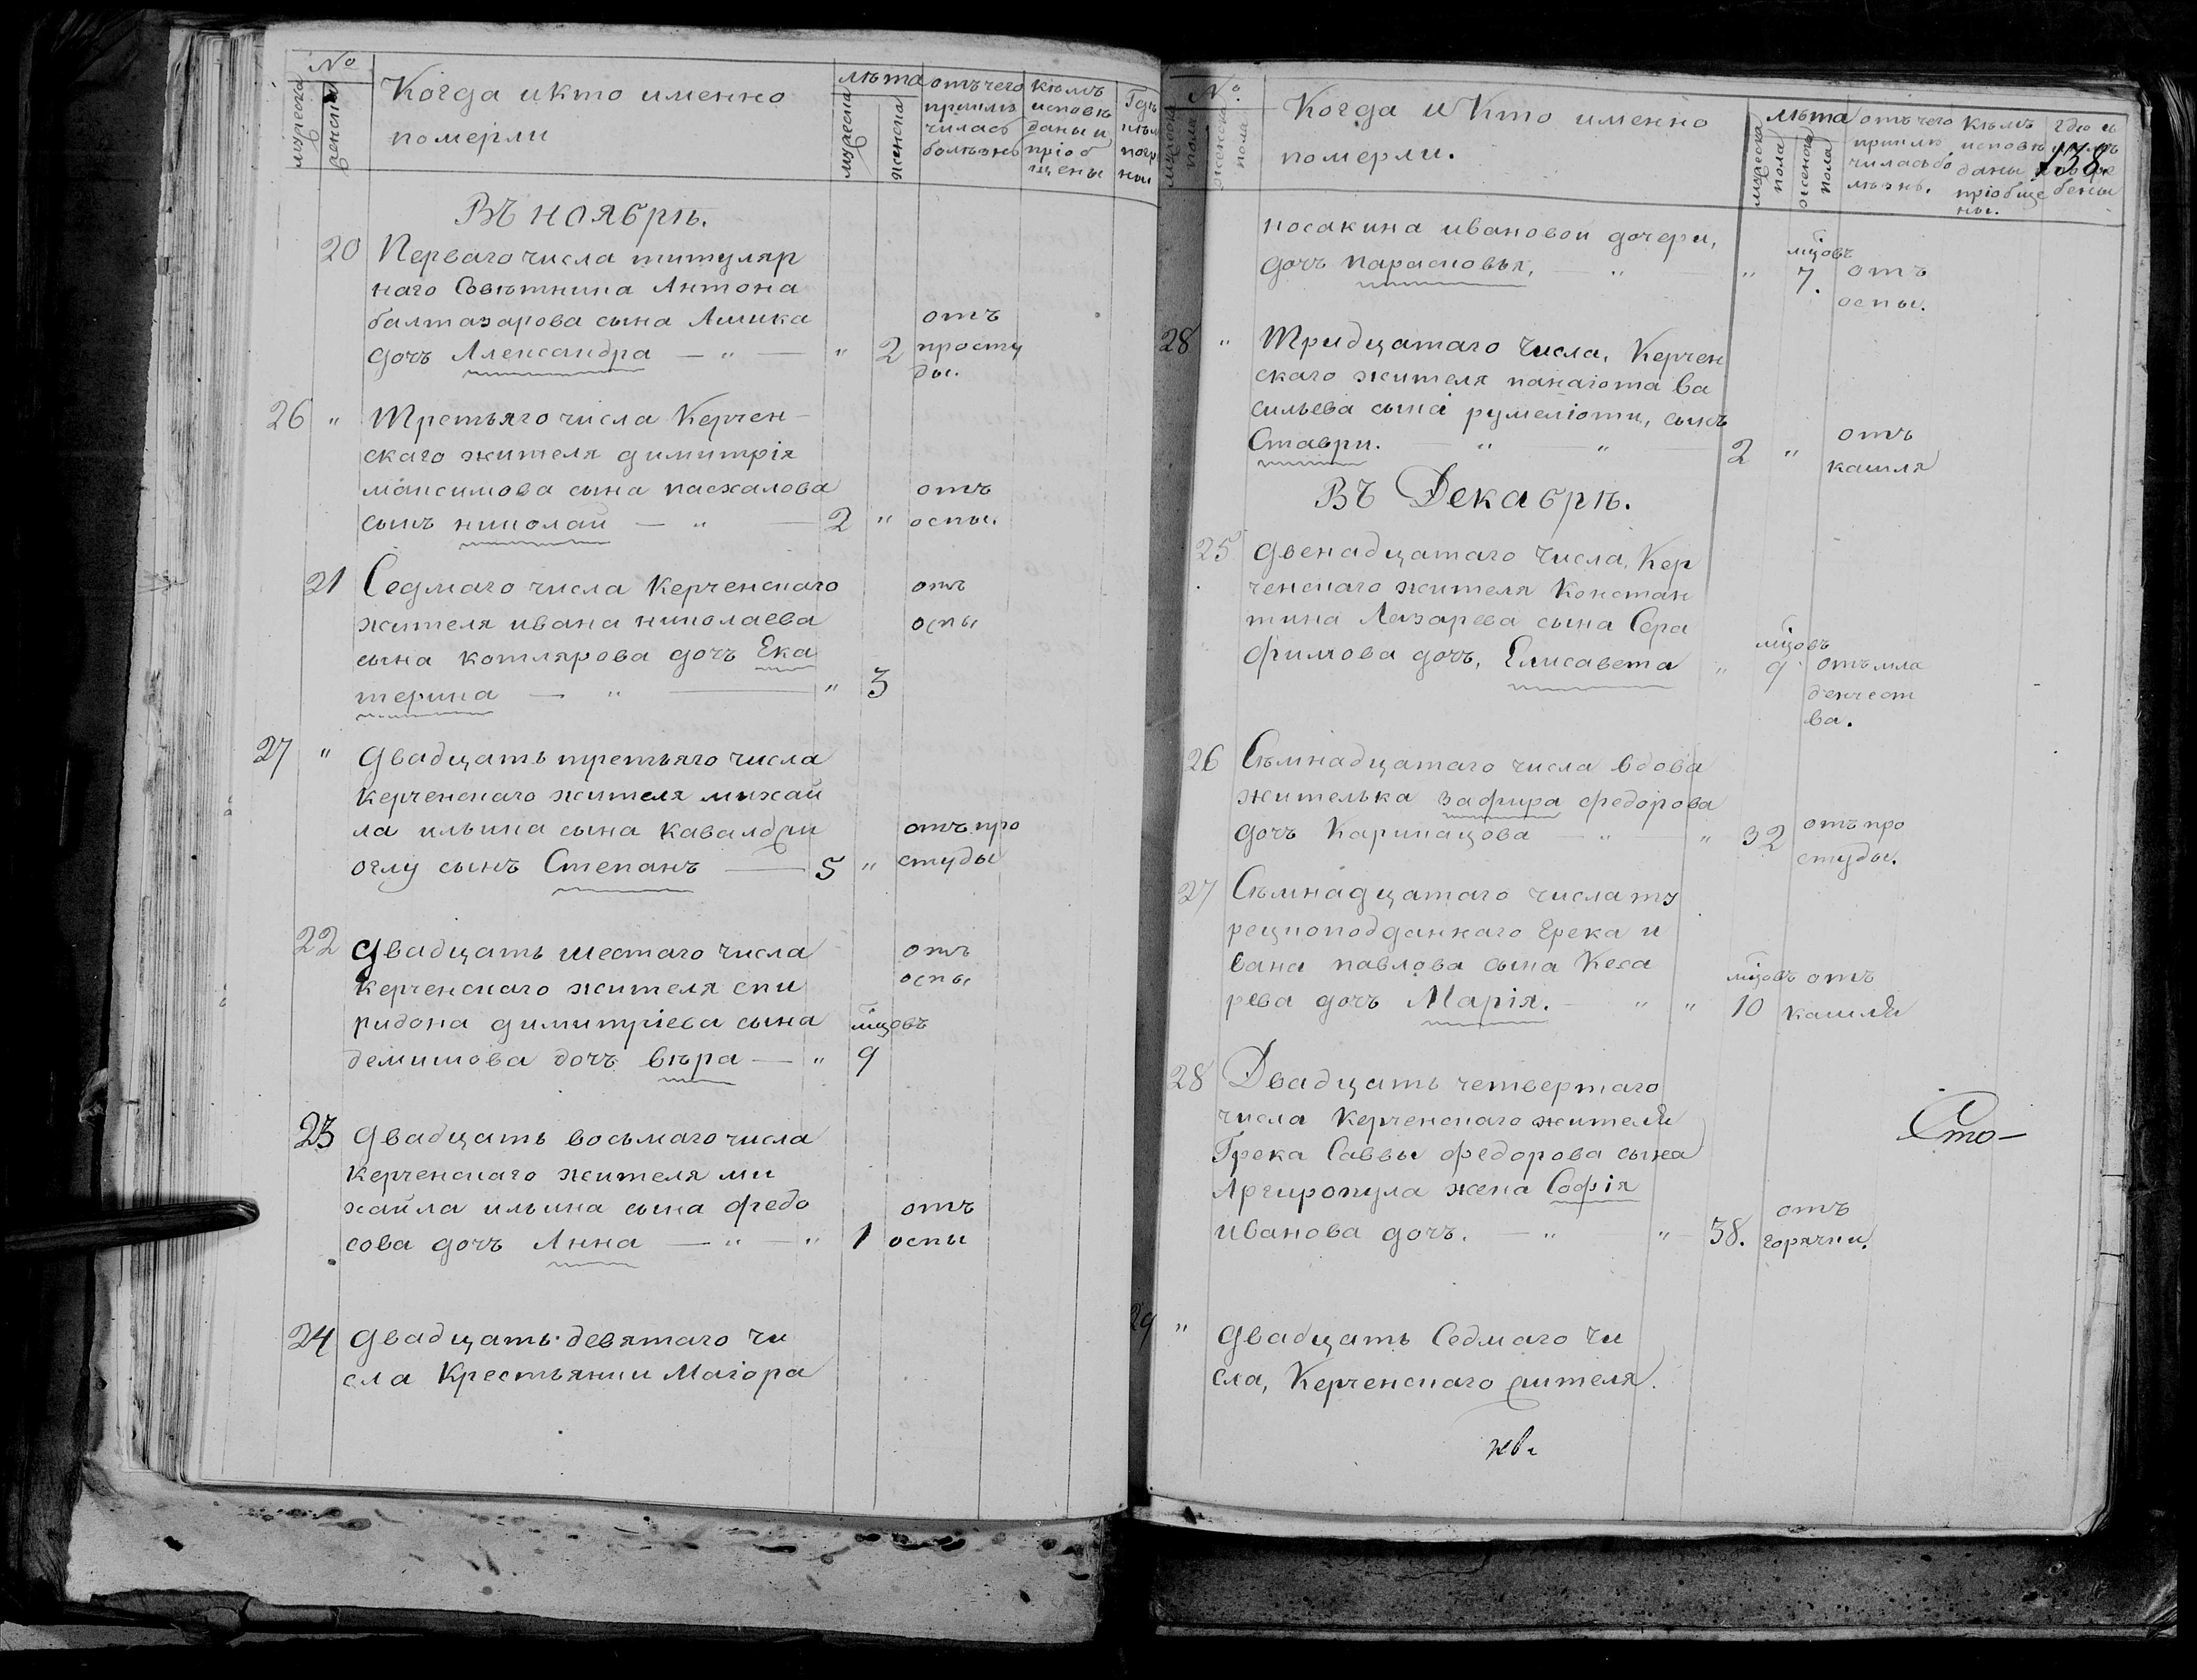 №
мужеска
женска
Когда и кто именно
померли
лѣта
мужеска
женска
отъ чего
приклю
чилась
болѣзнь
кѣмъ
исповѣ
даны и
пріоб
щены
Гдѣ
Въ ноябрѣ.
20 Перваго числа титуляр
наго Совѣтника Антона
балтазарова сына Ашика
дочь Александра — " — " 2 отъ
просту
ды.
26 " Третьяго числа Керчен-
скаго жителя димитрія
максимова сына пасхалова
сынъ николай — " — 2 " отъ
оспы.
21 Седмаго числа Керченскаго
жителя ивана николаева
сына котлярова дочь Ека
терина — " — " 3 отъ
оспы
27 " Двадцать третьяго числа
Керченскаго жителя михай
ла ильина сына кавалджи
оглу сынъ Степанъ — 5 " отъ про
студы
22 Двадцать шестаго числа
Керченскаго жителя спи
ридона димитріева сына
демишова дочь вѣра — " мцовъ
9 отъ
оспы
23 Двадцать восьмаго числа
Керченскаго жителя ми
хайла ильина сына федо
сова дочь Анна — " — " 1 отъ
оспы
24 Двадцать девятаго чи
сла Крестьянки Маіора
№.
мужеска
пола
женска
пола
Когда и Кто именно
померли.
лѣта
мужеска
пола
женска
пола
отъ чего
приклю
чилась бо
лѣзнь.
кѣмъ
исповѣ
даны
пріобще
ны.
гдѣ и
бены
138.
посакина ивановой дочери,
дочь парасковья, — " — " мцовъ
7. отъ
оспы.
28 " Тридцатаго числа, Керчен
скаго жителя панаіота ва
сильева сына румеліоти, сынъ
Ставри. — " — " — 2 " отъ
кашля
Въ Декабрѣ.
25 Двенадцатаго числа, Кер
ченскаго жителя Констан
тина Лазарева сына Сера
фимова дочь, Елисавета " мцовъ
9 отъ мла
денчест
ва.
26 Сѣмнадцатаго числа вдова
жителька зафира федорова
дочь Карипацова — " — " 32 отъ про
студы.
27 Сѣмнадцатаго числа ту
рецкоподданнаго Грека и
вана павлова сына Keса
рева дочь Марія. — " " мцовъ
10 отъ
кашля
28 Двадцать четвертаго
числа Керченскаго жителя
Грека Саввы федорова сына
Аргиропула жена Софія
иванова дочь. — " " 38. отъ
горячки.
Сто-
29 " Двадцать Седмаго чи
сла, Керченскаго жителя.